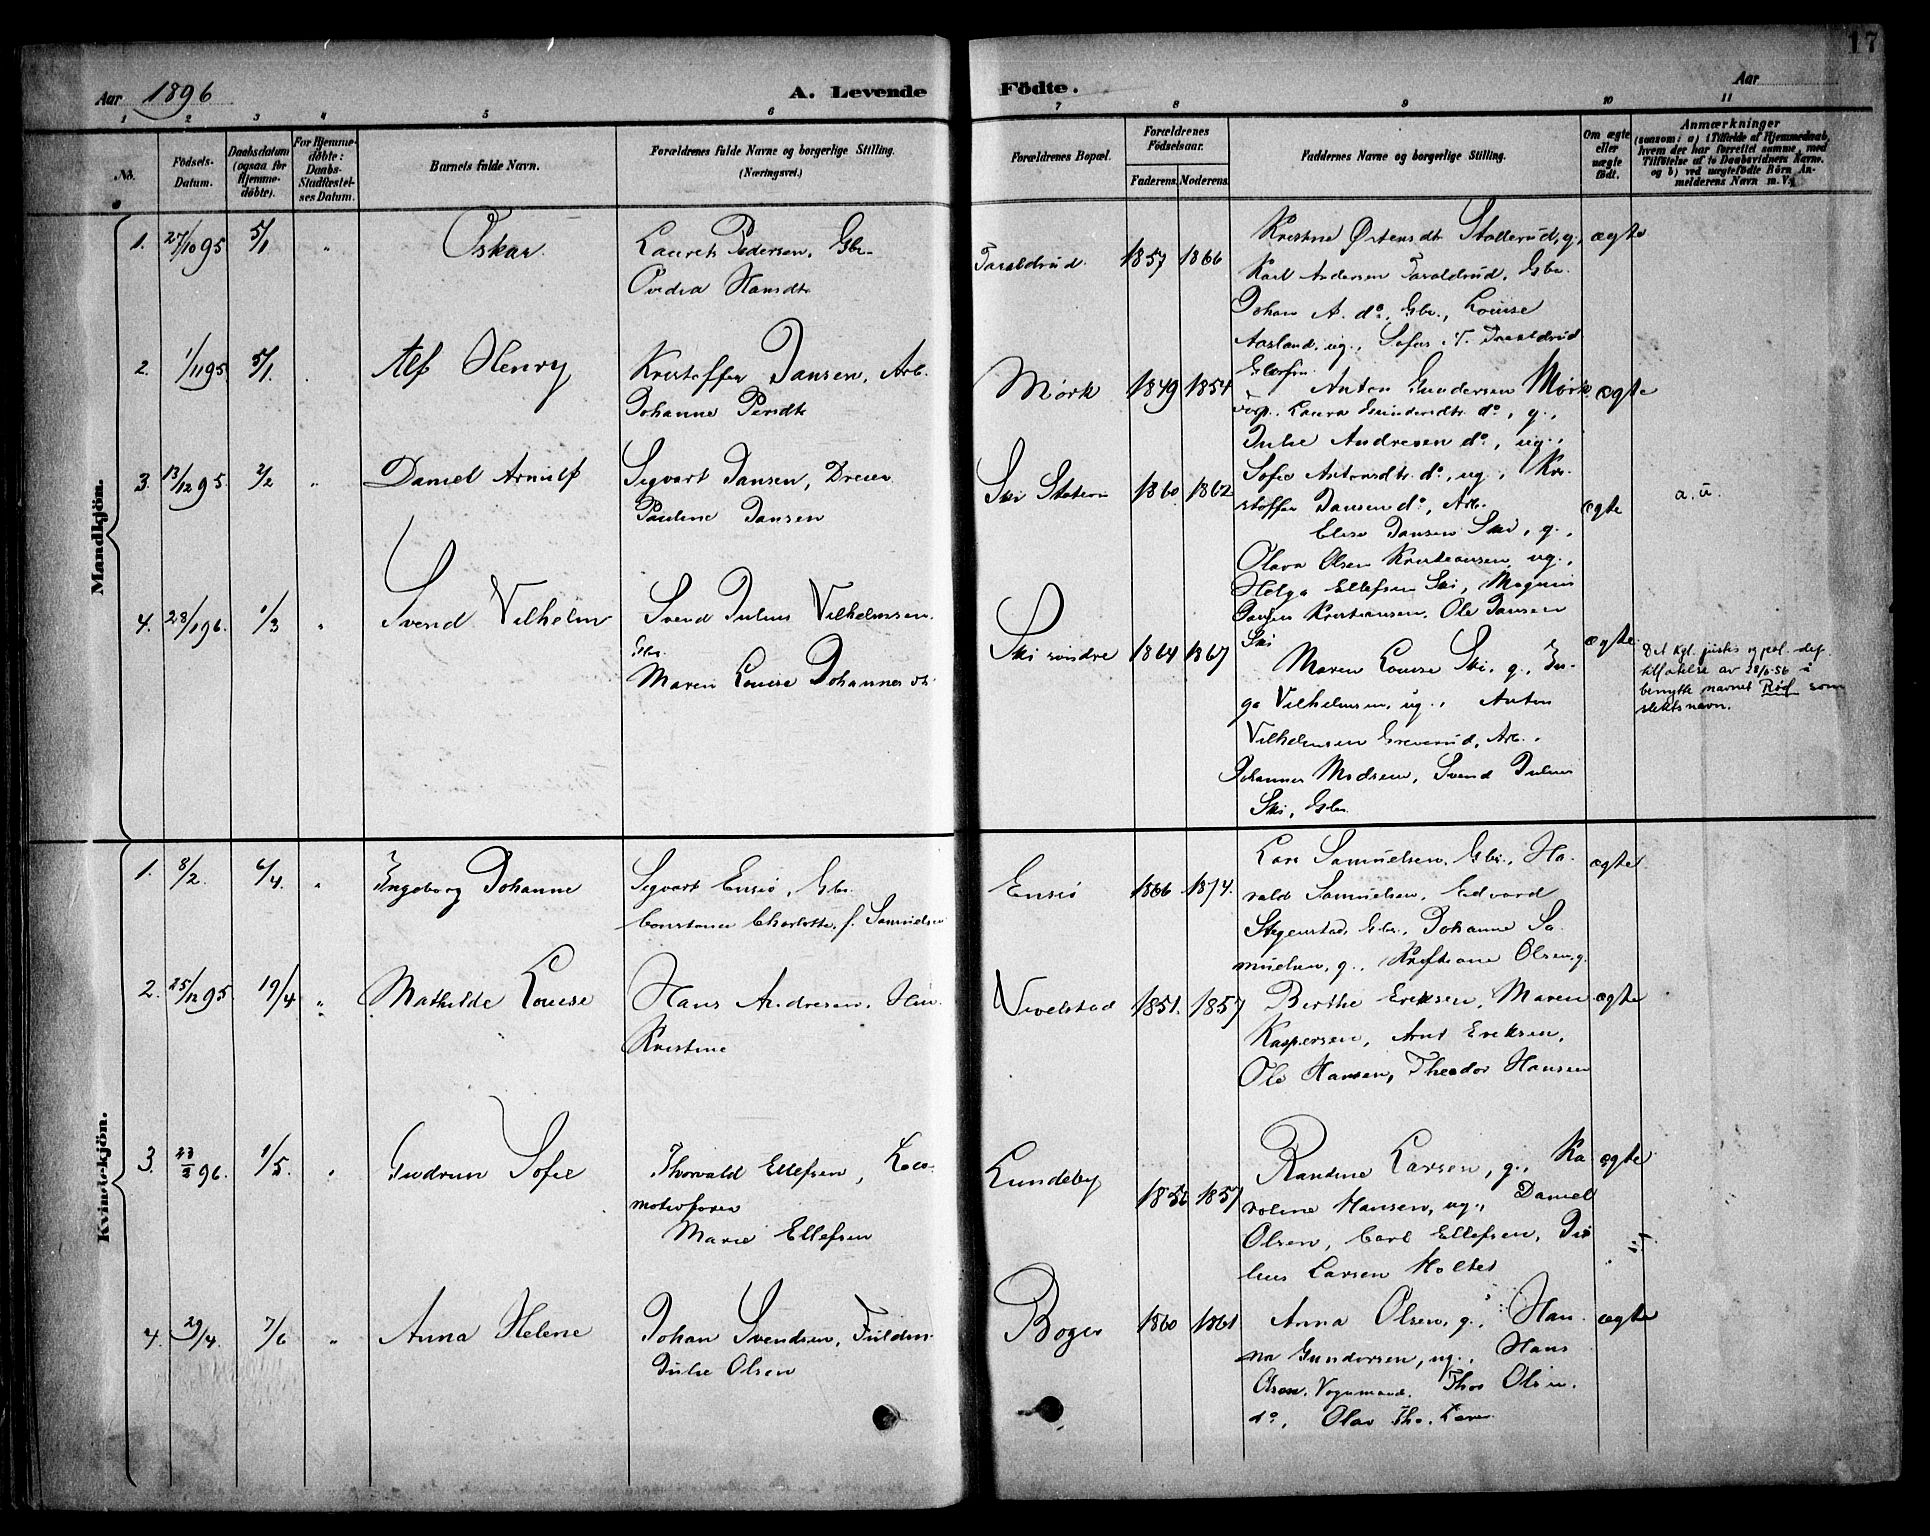 17
Aar 1896
A. Levende
Födte.
Aar
1 2 3 4 5 6 7 8 9 10 11
No.
Födsels-Datum.
Daabsdatum (ogsaa for Hjemme-døbte).
For Hjemme-døbte: Daabs-Stadfæstel-ses Datum.
Barnets fulde Navn.
Forældrenes fulde Navne og borgerlige Stilling.
(Næringsvei.)
Forældrenes Bopæl.
Forældrenes Födselsaar.
Faderens. Moderens.
Faddernes Navne og borgerlige Stilling.
Om ægte eller uægte født.
Anmærkninger
(saasom: a) i Tilfælde af Hjemmedaab, hvem der har forrettet samme, med Tilföielse af to Daabsvidners Navne, og b) ved uægtefödte Börn An-melderens Navn m. V.)
Mandkjön.
1. 27/10 95 5/1 " Oskar
Laurets Pedersen, Gbr.
Ovedia Hansdtr
Taraldrud. 1857 1866
Kristine Ørtensdtr Stallerud, g.,
Karl Andersen Taraldrud, Gbr.
Johan A. do, Gbr., Louise
Aasland, ug., Sofus T. Taraldrud
ægte
2. 1/11 95 5/1 . Alf Henry
Kristoffer Jansen, Arb.
Johanne Persdtr
Mørk 1849 1854
Anton Gundersen Mørk
Laura Gundersdtr. do, g.,
Julie Andresen do, ug.,
Sofie Antonsdtr. do, ug., Kri-
stoffer Jansen do, Arb.
ægte
3. 13/12 95. 2/2 " Daniel Arnulf
Sigvart Jansen, Dreier
Pauline Jansen
Ski Station 1860 1862
Elise Jansen Ski, g.,
Olava Olsen Kristiansen, ug.,
Helga Ellefsen Ski, Magnus
Jansen Kristiansen, Ole Jansen
Ski
ægte
a. u.
4. 28/1 96. 1/3 " Svend Vilhelm
Svend Julius Vilhelmsen.
Gbr.
Maren Louise Johannesdtr.
Ski søndre 1864 1867
Maren Louise Ski, g., In-
ga Vilhelmsen, ug., Anton
Vilhelmsen Greverud, Arb.,
Johannes Madsen, Svend Julius
Ski, Gbr.
ægte
Det kgl. justis og pol. dep.
tillatelse av 28/6-56 å
benytte navnet Rød som
slektsnavn.
Kvindekjön.
1. 8/2. 6/4. " Ingeborg Johanne
Sigvart Ensiø, Gbr.
Constance Charlotte, f. Samuelsen
Ensiø 1866 1874.
Lars Samuelsen, Gbr., Ha-
rald Samuelsen, Edvard
Stegenstad, Gbr., Johanne Sa-
muelsen, g., Kristiane Olsen, g.
ægte
2. 25/12 95 19/4 " Mathilde Louise
Hans Andresen,
Kristine
Vevelstad 1851. 1857
Berthe Eriksen, Maren
Kaspersen, Arnt Eriksen,
Ole Hansen, Theodor Hansen
ægte
3. 23/3 96. 1/5. " Gudrun Sofie
Thorvald Ellefsen, Loco-
motivfører
Marie Ellefsen
Lundeby 1857
Randine Larsen, g., Ka-
roline Hansen, ug., Daniel
Olsen, Carl Ellefsen, Ju-
lius Larsen Holter
ægte
4. 29/4. 7/6 " Anna Helene
Johan Svendsen, Fuldm.
Julie Olsen
Boger 1860 1861
Anna Olsen, g., Han-
na Gundersen, ug., Hans
Olsen, Vognmand, Thor Olsen,
do, Olav
ægte